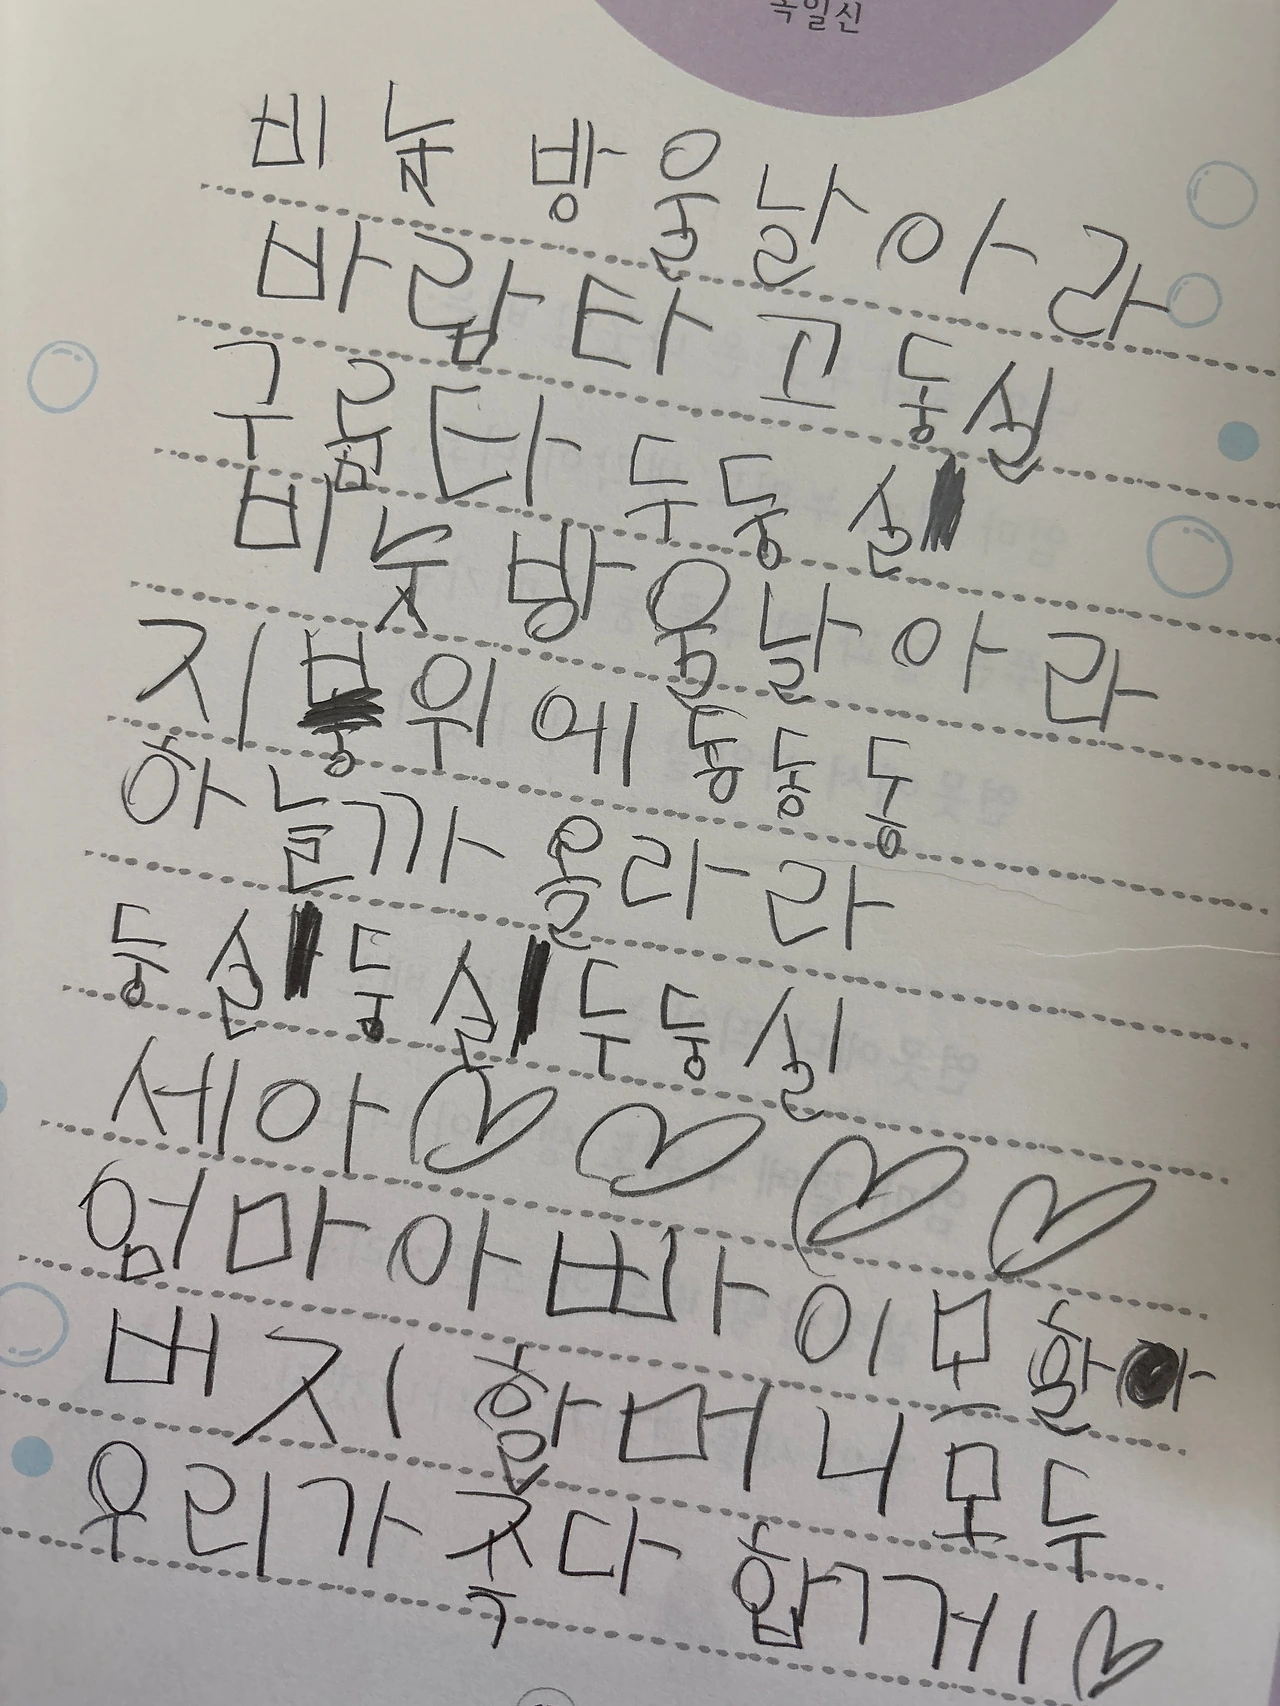 목일신
비눈 방울날아라
바람타고 둥실
구름타 두둥실
비눗방울날아라
지붕위에 동동동
하늘까 올라라
둥실둥실두둥실
세아♡♡♡♡
엄마아빠이모할아
버지할머니모두
우리가족다 합ㄱ게♡